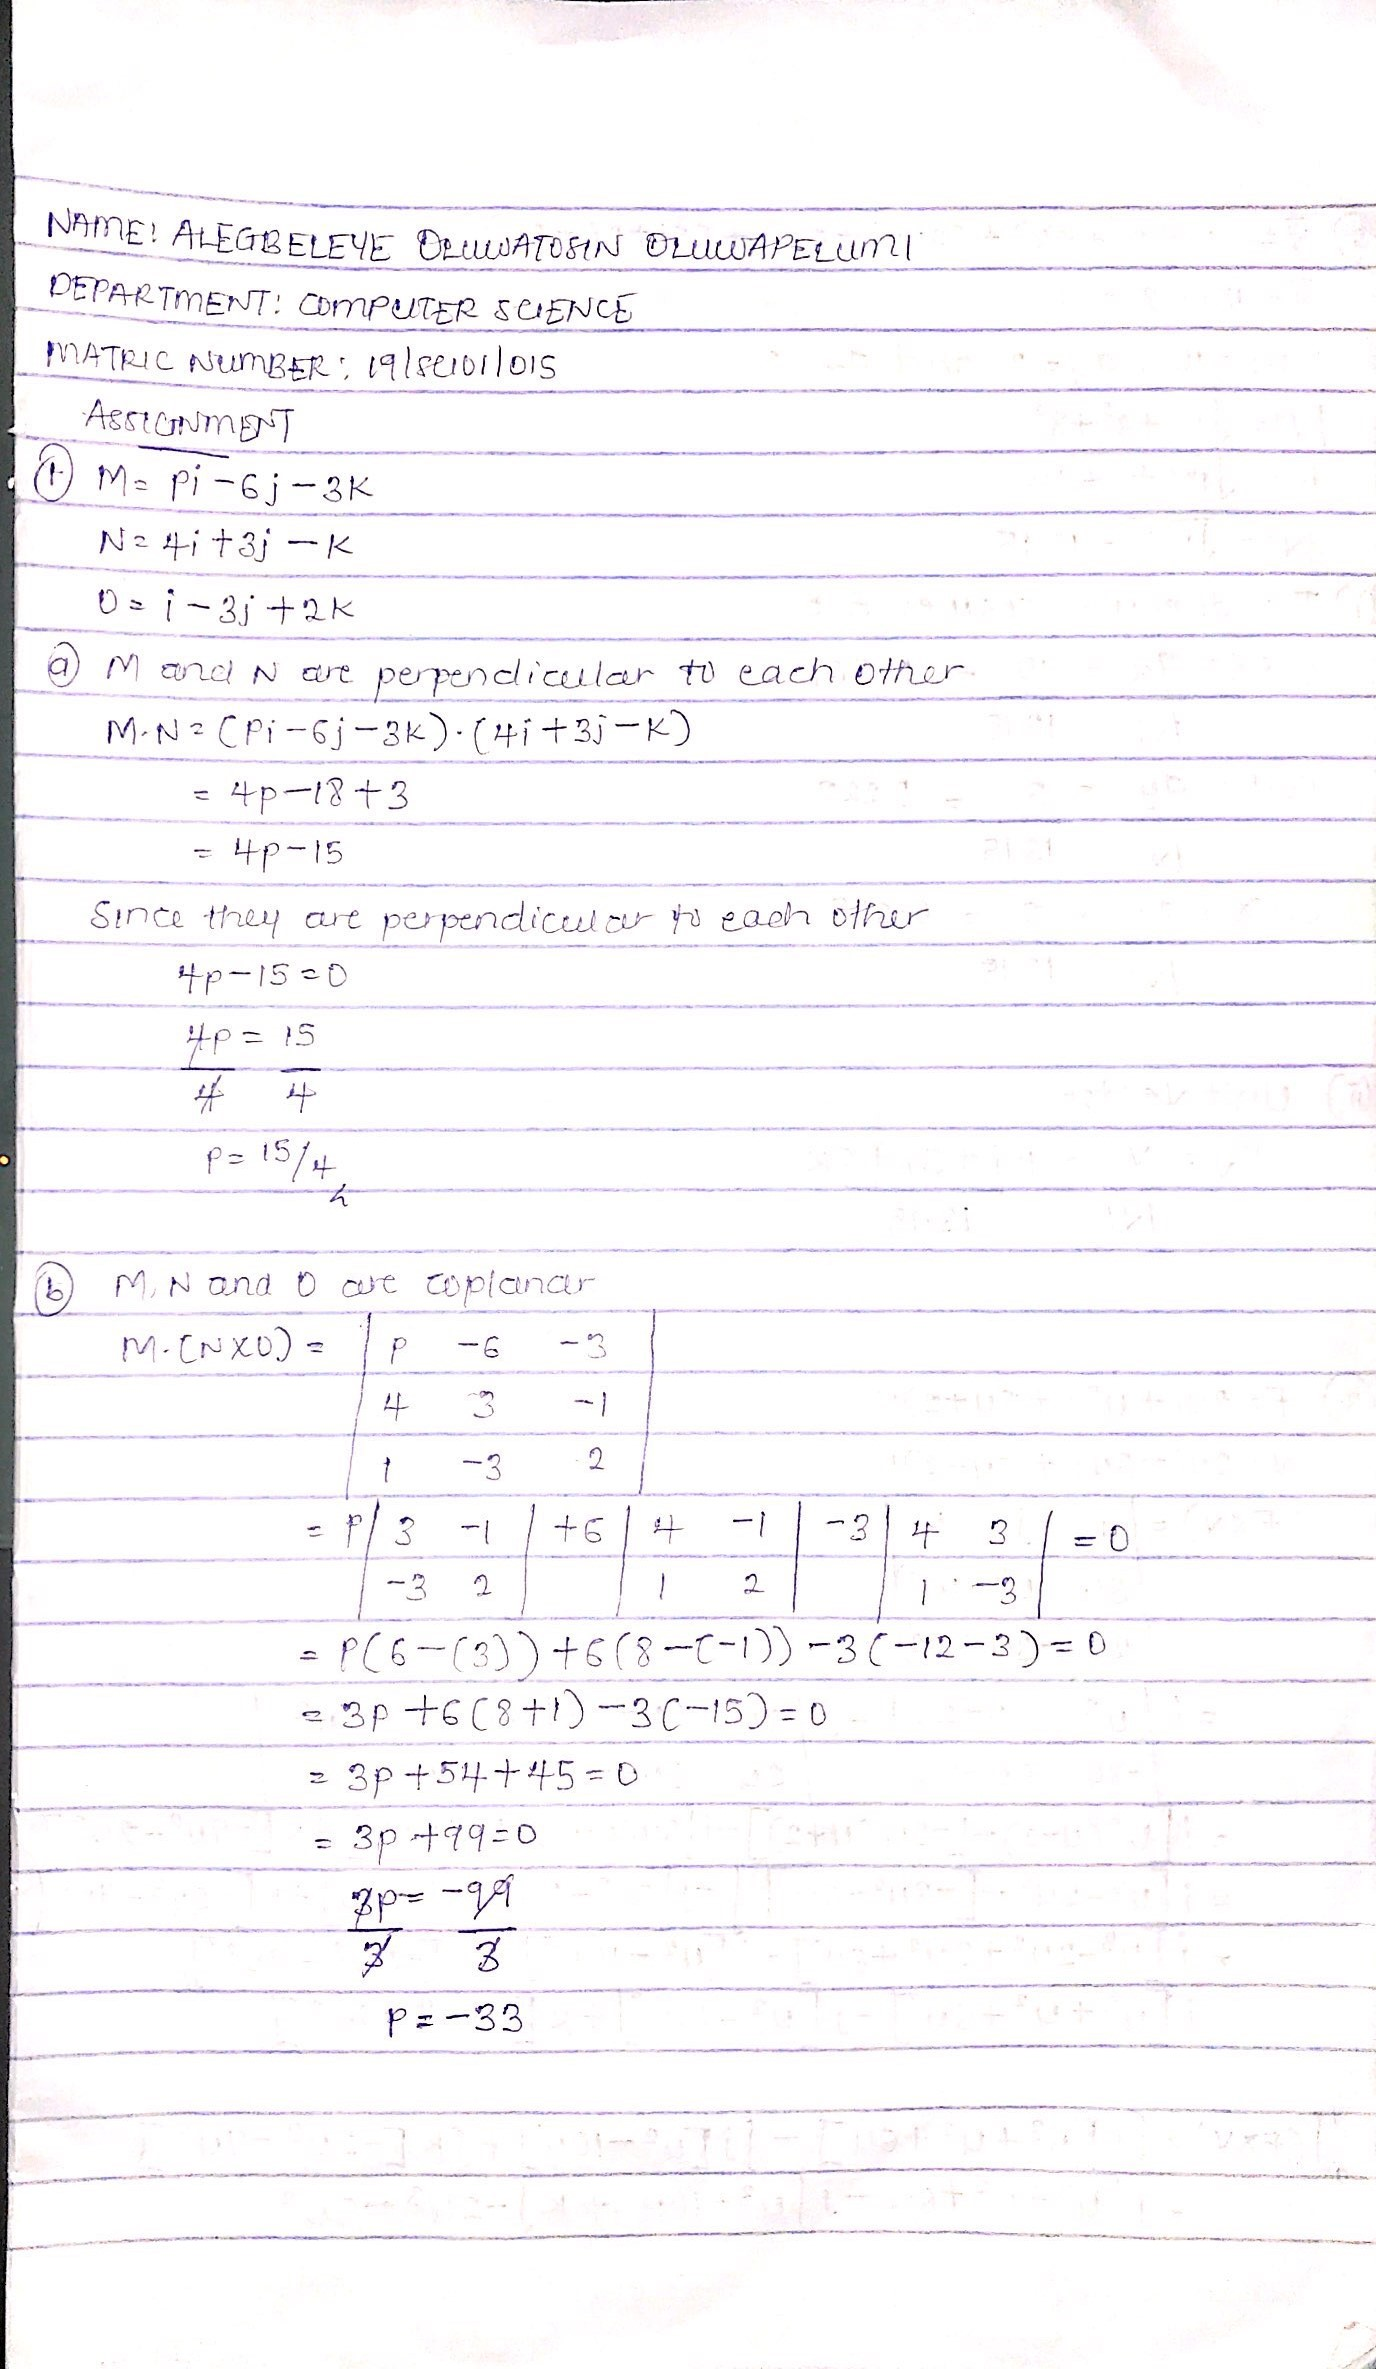 NAME: ALEGBELEYE OLUWATOSIN OLUWAPELUMI
DEPARTMENT: COMPUTER SCIENCE
MATRIC NUMBER: 19/SCI01/015
ASSIGNMENT
① M= Pi -6j -3K
N= 4i +3j -K
O= i -3j +2K
ⓐ M and N are perpendicular to each other
M.N = (Pi -6j -3K).(4i +3j -K)
= 4p -18 +3
= 4p -15
Since they are perpendicular to each other
4p -15 =0
4p = 15
4 4
P= 15/4
ⓑ M, N and O are coplanar
M.(NXO) = | P -6 -3 |
4 3 -1
1 -3 2
= P| 3 -1 | +6 | 4 -1 | -3 | 4 3 | =0
-3 2 1 2 1 -3
= P(6-(3)) +6(8-(-1)) -3(-12-3) =0
= 3P +6(8+1) -3(-15) =0
= 3p +54 +45 =0
= 3p +99=0
3p= -99
3 3
P= -33